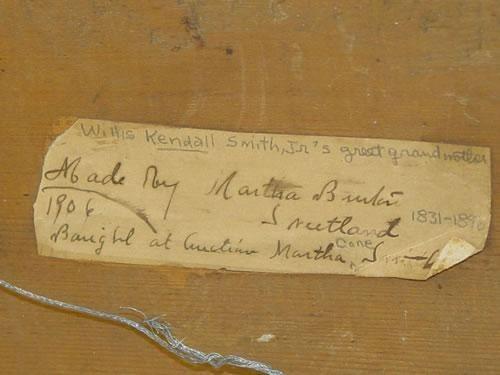 Willis Kendall Smith, Jr's great grandmother
Made by Martha
1906 1831-1890
Bought at Auction Martha, Cone